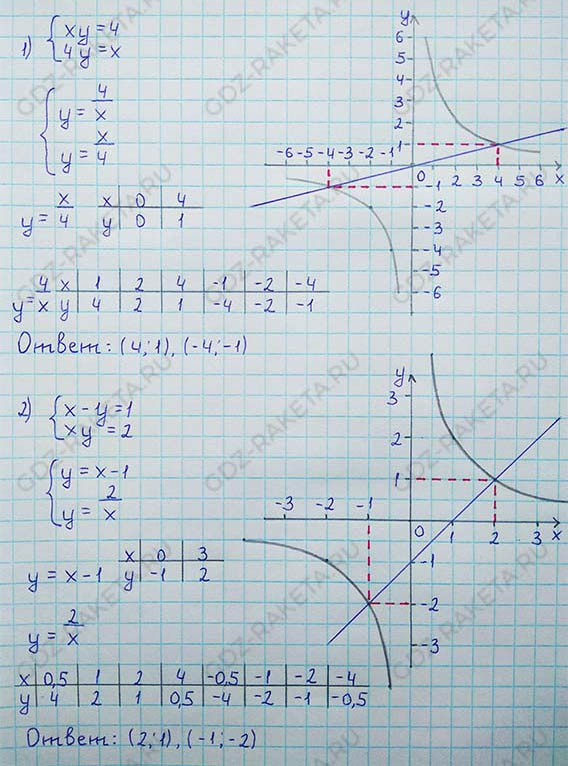 1) { xy = 4
4y = x
{ y = 4/x
y = x/4
y = x/4
x | 0 | 4
y | 0 | 1
y = 4/x
x | 1 | 2 | 4 | -1 | -2 | -4
y | 4 | 2 | 1 | -4 | -2 | -1
y
6
5
4
3
2
1
-6 -5 -4 -3 -2 -1
0 1 2 3 4 5 6 x
-1
-2
-3
-4
-5
-6
Ответ: (4; 1), (-4; -1)
2) { x - y = 1
xy = 2
{ y = x - 1
y = 2/x
y = x - 1
x | 0 | 3
y | -1 | 2
y = 2/x
y
3
2
1
-3 -2 -1
0 1 2 3 x
-1
-2
-3
x | 0,5 | 1 | 2 | 4 | -0,5 | -1 | -2 | -4
y | 4 | 2 | 1 | 0,5 | -4 | -2 | -1 | -0,5
Ответ: (2; 1), (-1; -2)
GDZ-RAKETA.RU